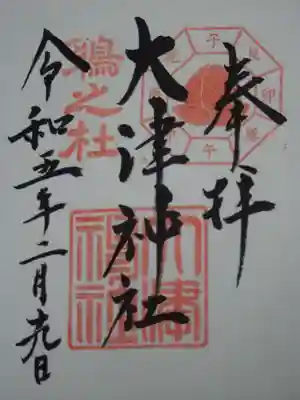 奉拝
子
卯
午
大津神社
大津
神社
鴨之社
令和五年二月十九日